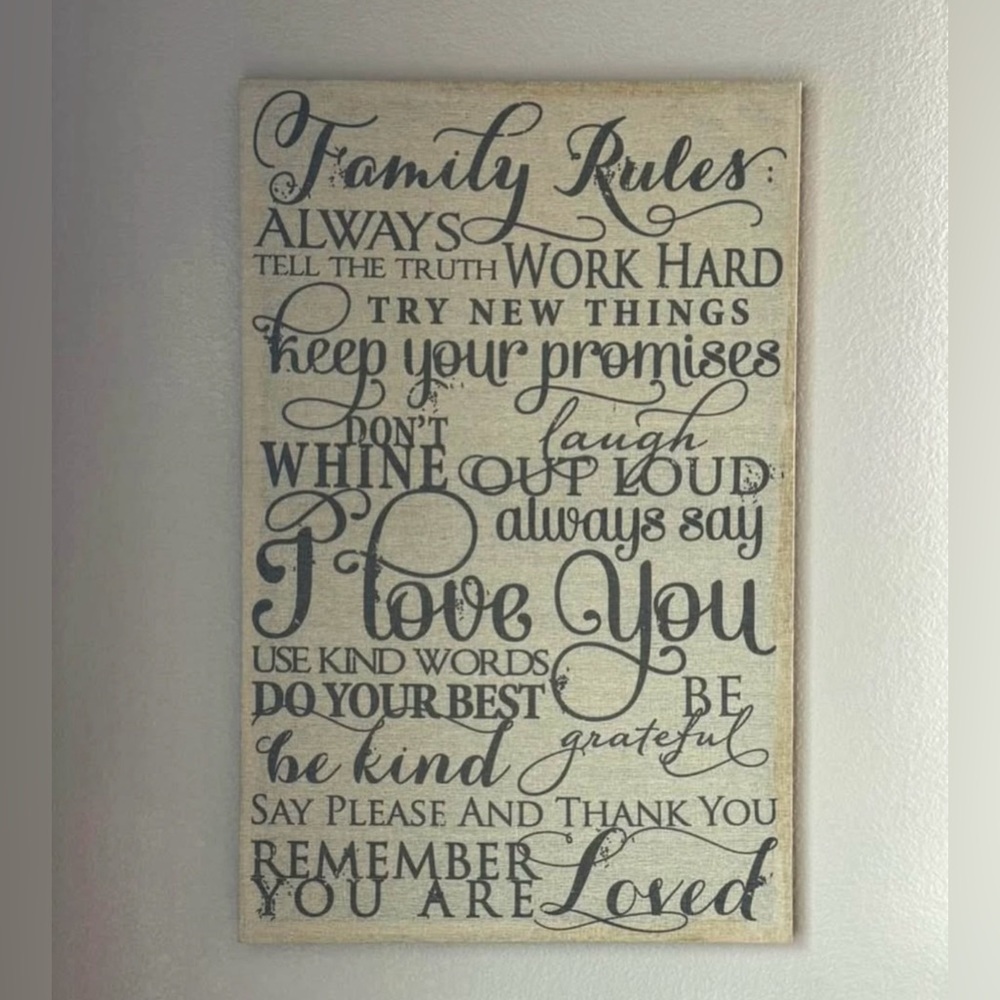 Family Rules:
ALWAYS
TELL THE TRUTH WORK HARD
TRY NEW THINGS
keep your promises
DON'T laugh
WHINE OUT LOUD
always say
I love You
USE KIND WORDS
DO YOUR BEST BE
grateful
be kind
SAY PLEASE AND THANK YOU
REMEMBER
YOU ARE Loved